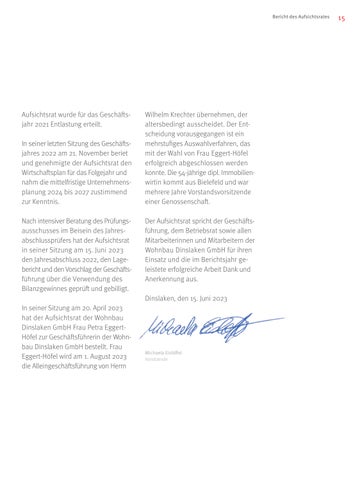 Bericht des Aufsichtsrates 15
Aufsichtsrat wurde für das Geschäfts-
jahr 2021 Entlastung erteilt.
In seiner letzten Sitzung des Geschäfts-
jahres 2022 am 21. November beriet
und genehmigte der Aufsichtsrat den
Wirtschaftsplan für das Folgejahr und
nahm die mittelfristige Unternehmens-
planung 2024 bis 2027 zustimmend
zur Kenntnis.
Nach intensiver Beratung des Prüfungs-
ausschusses im Beisein des Jahres-
abschlussprüfers hat der Aufsichtsrat
in seiner Sitzung am 15. Juni 2023
den Jahresabschluss 2022, den Lage-
bericht und den Vorschlag der Geschäfts-
führung über die Verwendung des
Bilanzgewinnes geprüft und gebilligt.
In seiner Sitzung am 20. April 2023
hat der Aufsichtsrat der Wohnbau
Dinslaken GmbH Frau Petra Eggert-
Höfel zur Geschäftsführerin der Wohn-
bau Dinslaken GmbH bestellt. Frau
Eggert-Höfel wird am 1. August 2023
die Alleingeschäftsführung von Herrn
Wilhelm Krechter übernehmen, der
altersbedingt ausscheidet. Der Ent-
scheidung vorausgegangen ist ein
mehrstufiges Auswahlverfahren, das
mit der Wahl von Frau Eggert-Höfel
erfolgreich abgeschlossen werden
konnte. Die 54-jährige dipl. Immobilien-
wirtin kommt aus Bielefeld und war
mehrere Jahre Vorstandsvorsitzende
einer Genossenschaft.
Der Aufsichtsrat spricht der Geschäfts-
führung, dem Betriebsrat sowie allen
Mitarbeiterinnen und Mitarbeitern der
Wohnbau Dinslaken GmbH für ihren
Einsatz und die im Berichtsjahr ge-
leistete erfolgreiche Arbeit Dank und
Anerkennung aus.
Dinslaken, den 15. Juni 2023
Vorsitzende